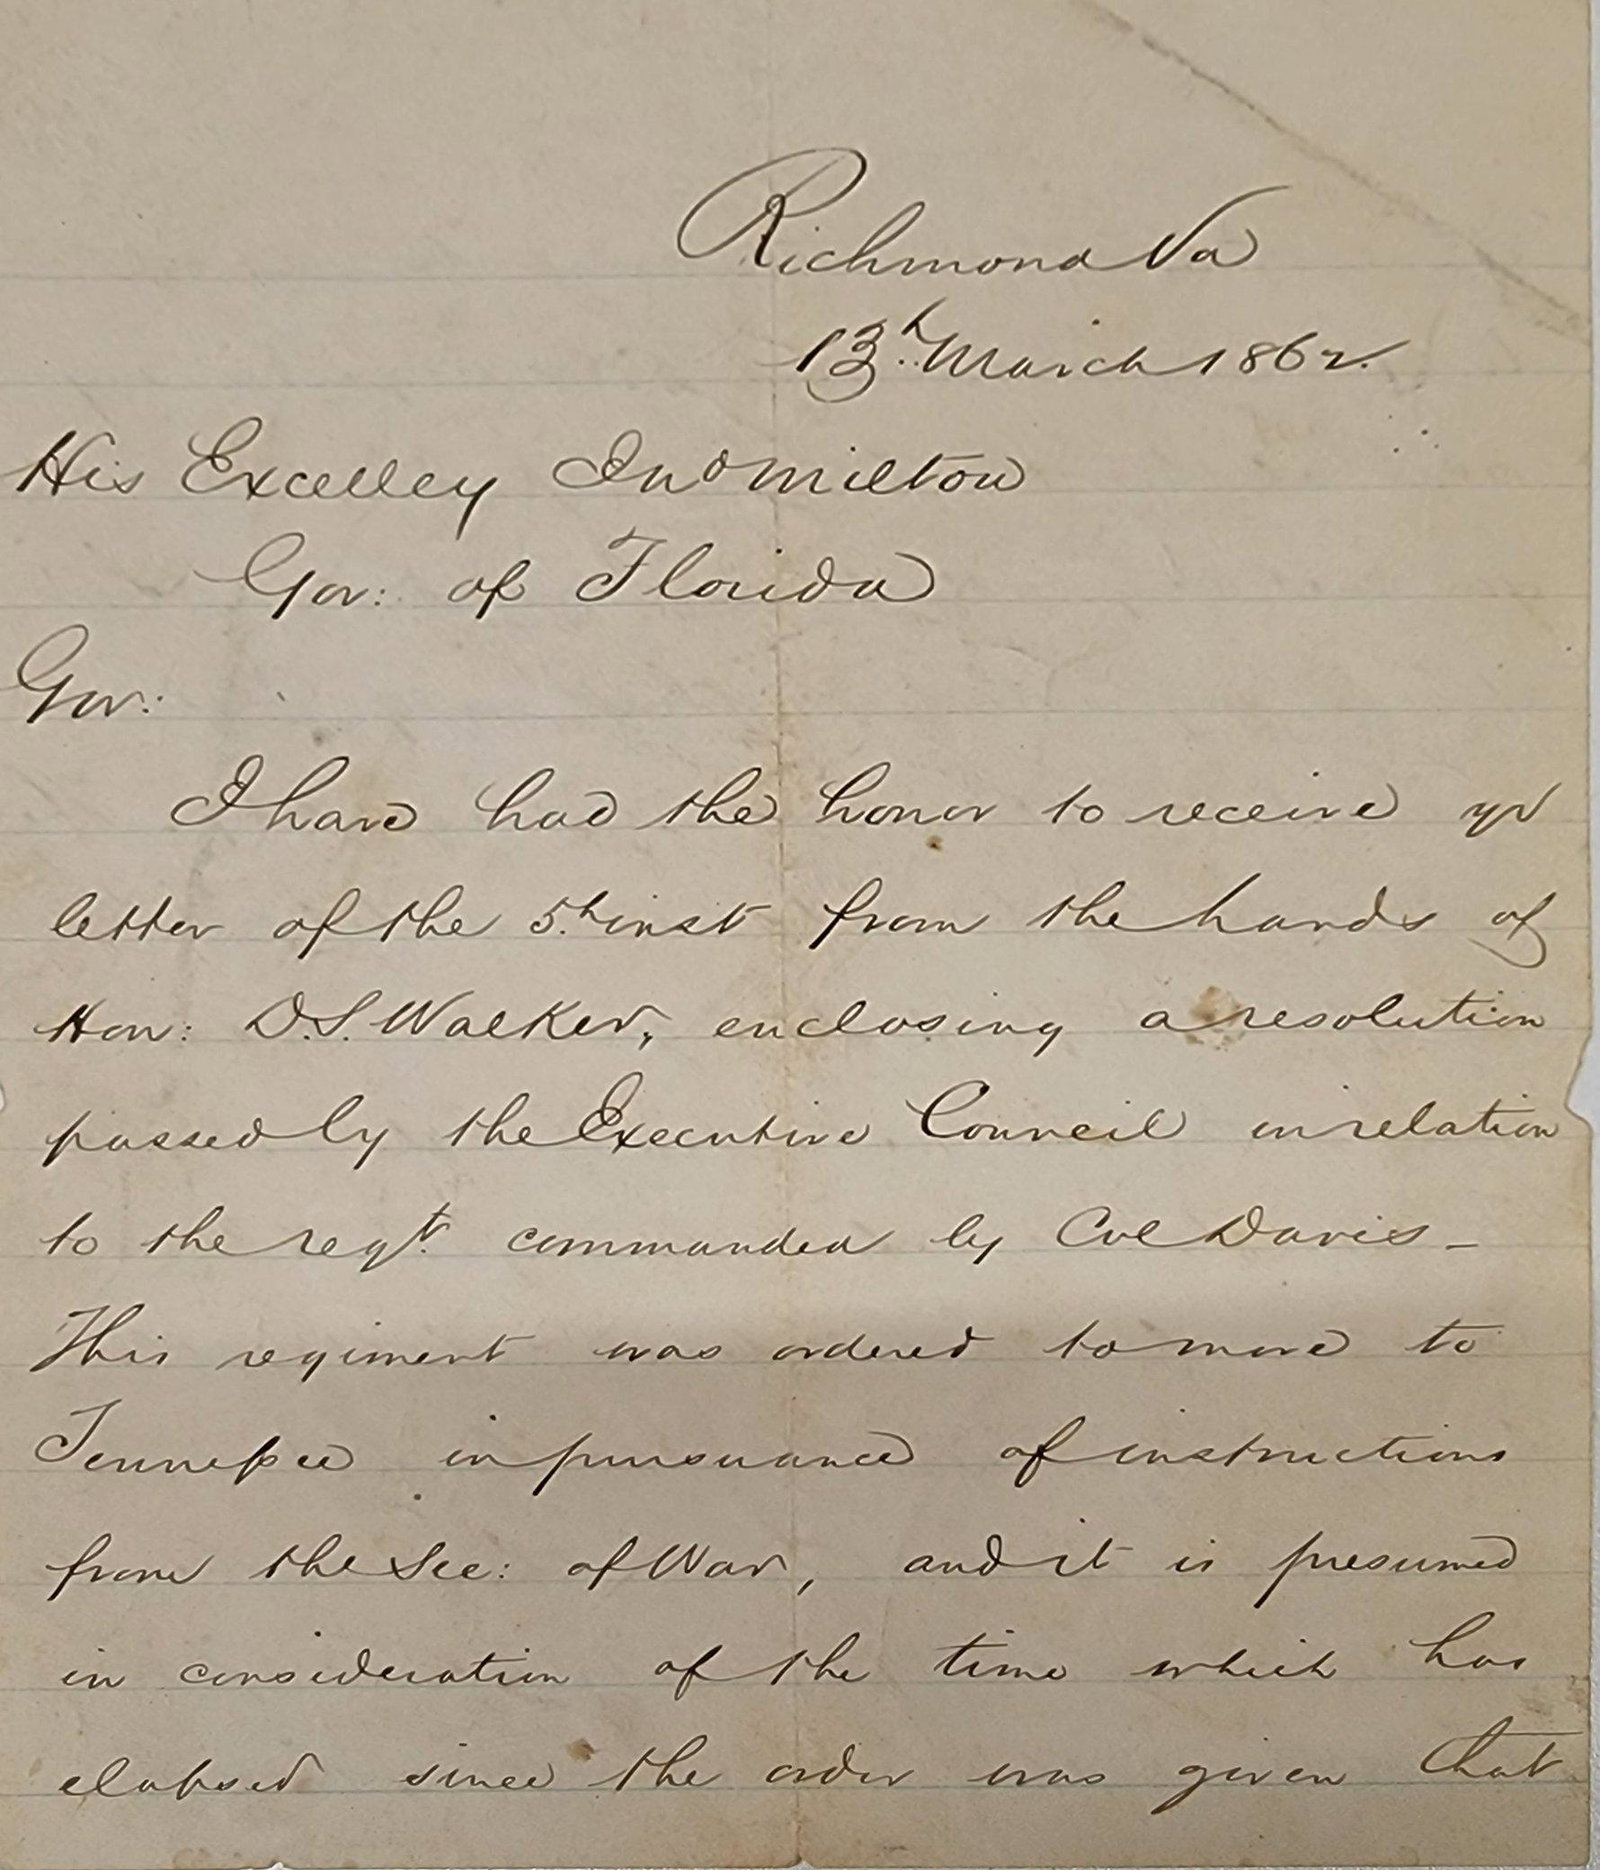 Richmond Va
13h. March 1862.
His Excelley Jno Milton
Gov: of Florida
Gov:
I have had the honor to receive yr
letter of the 5.h inst from the hands of
Hon: D.S. Walker, enclosing a resolution
passed by the Executive Council in relation
to the regt. commanded by Col Davis -
This regiment was ordered to move to
Tennessee in pursuance of instructions
from the Sec: of War, and it is presumed
in consideration of the time which has
elapsed since the order was given that